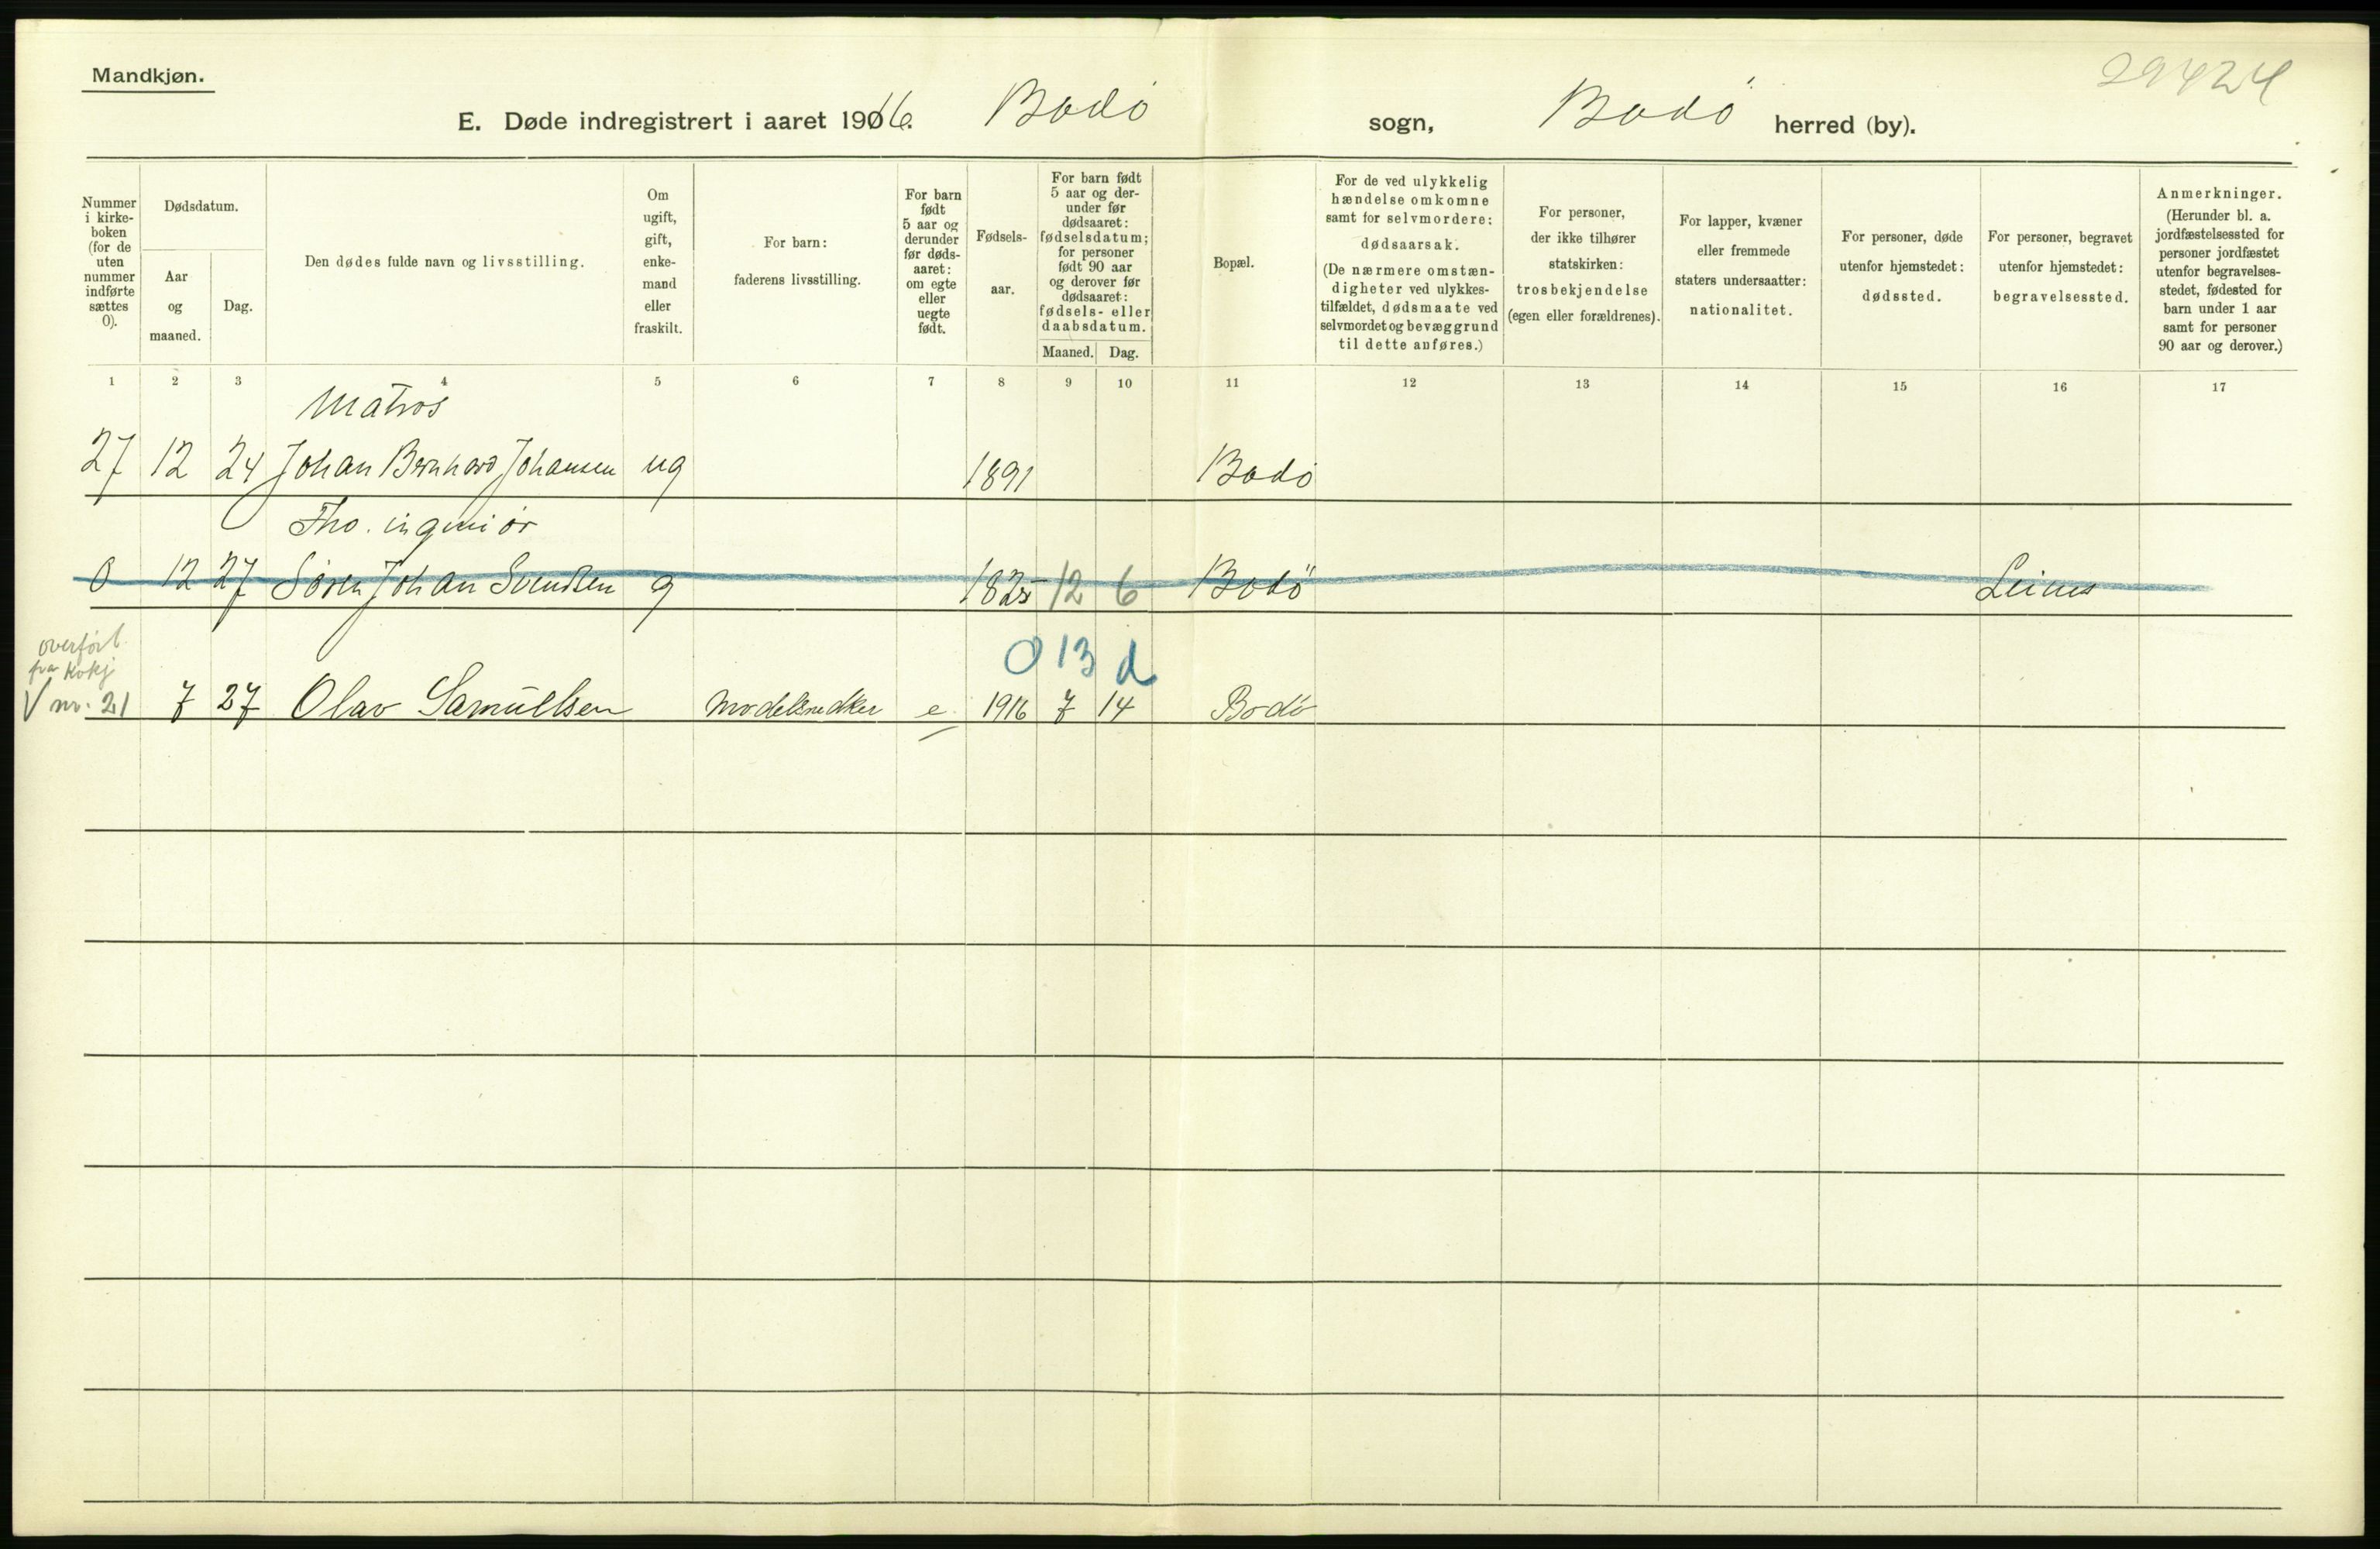 Mandkjøn.
29424
E. Døde indregistrert i aaret 1916. Bodø sogn, Bodø herred (by).
Nummer i kirke-boken (for de uten nummer indførte sættes 0).
Dødsdatum.
Aar og maaned.
Dag.
Den dødes fulde navn og livsstilling.
Om ugift, gift, enke-mand eller fraskilt.
For barn: faderens livsstilling.
For barn født 5 aar og derunder før døds-aaret: om egte eller uegte født.
Fødsels-aar.
For barn født 5 aar og der-under før dødsaaret: fødselsdatum; for personer født 90 aar og derover før dødsaaret: fødsels- eller daabsdatum.
Maaned. Dag.
Bopæl.
For de ved ulykkelig hændelse omkomne samt for selvmordere: dødsaarsak. (De nærmere omstæn-digheter ved ulykkes-tilfældet, dødsmaate ved selvmordet og bevæggrund til dette anføres.)
For personer, der ikke tilhører statskirken: trosbekjendelse (egen eller forældrenes).
For lapper, kvæner eller fremmede staters undersaatter: nationalitet.
For personer, døde utenfor hjemstedet: dødssted.
For personer, begravet utenfor hjemstedet: begravelsessted.
Anmerkninger. (Herunder bl. a. jordfæstelsessted for personer jordfæstet utenfor begravelses-stedet, fødested for barn under 1 aar samt for personer 90 aar og derover.)
1 2 3 4 5 6 7 8 9 10 11 12 13 14 15 16 17
Matros
27 12 24 Johan Bernhard Johansen ug 1891 Bodø
ingeniør
0 12 27 Søren Johan Svendsen g 1825 12 6 Bodø Leines
overført
fra
0 13 d
nr. 21 7 27 Olav Samuelsen Modelsnedker e 1916 7 14 Bodø